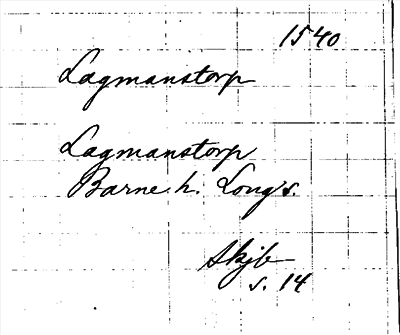 1540
Lagmanstorp
Lagmanstorp
Barne h. Longs.
Skjb
s. 14